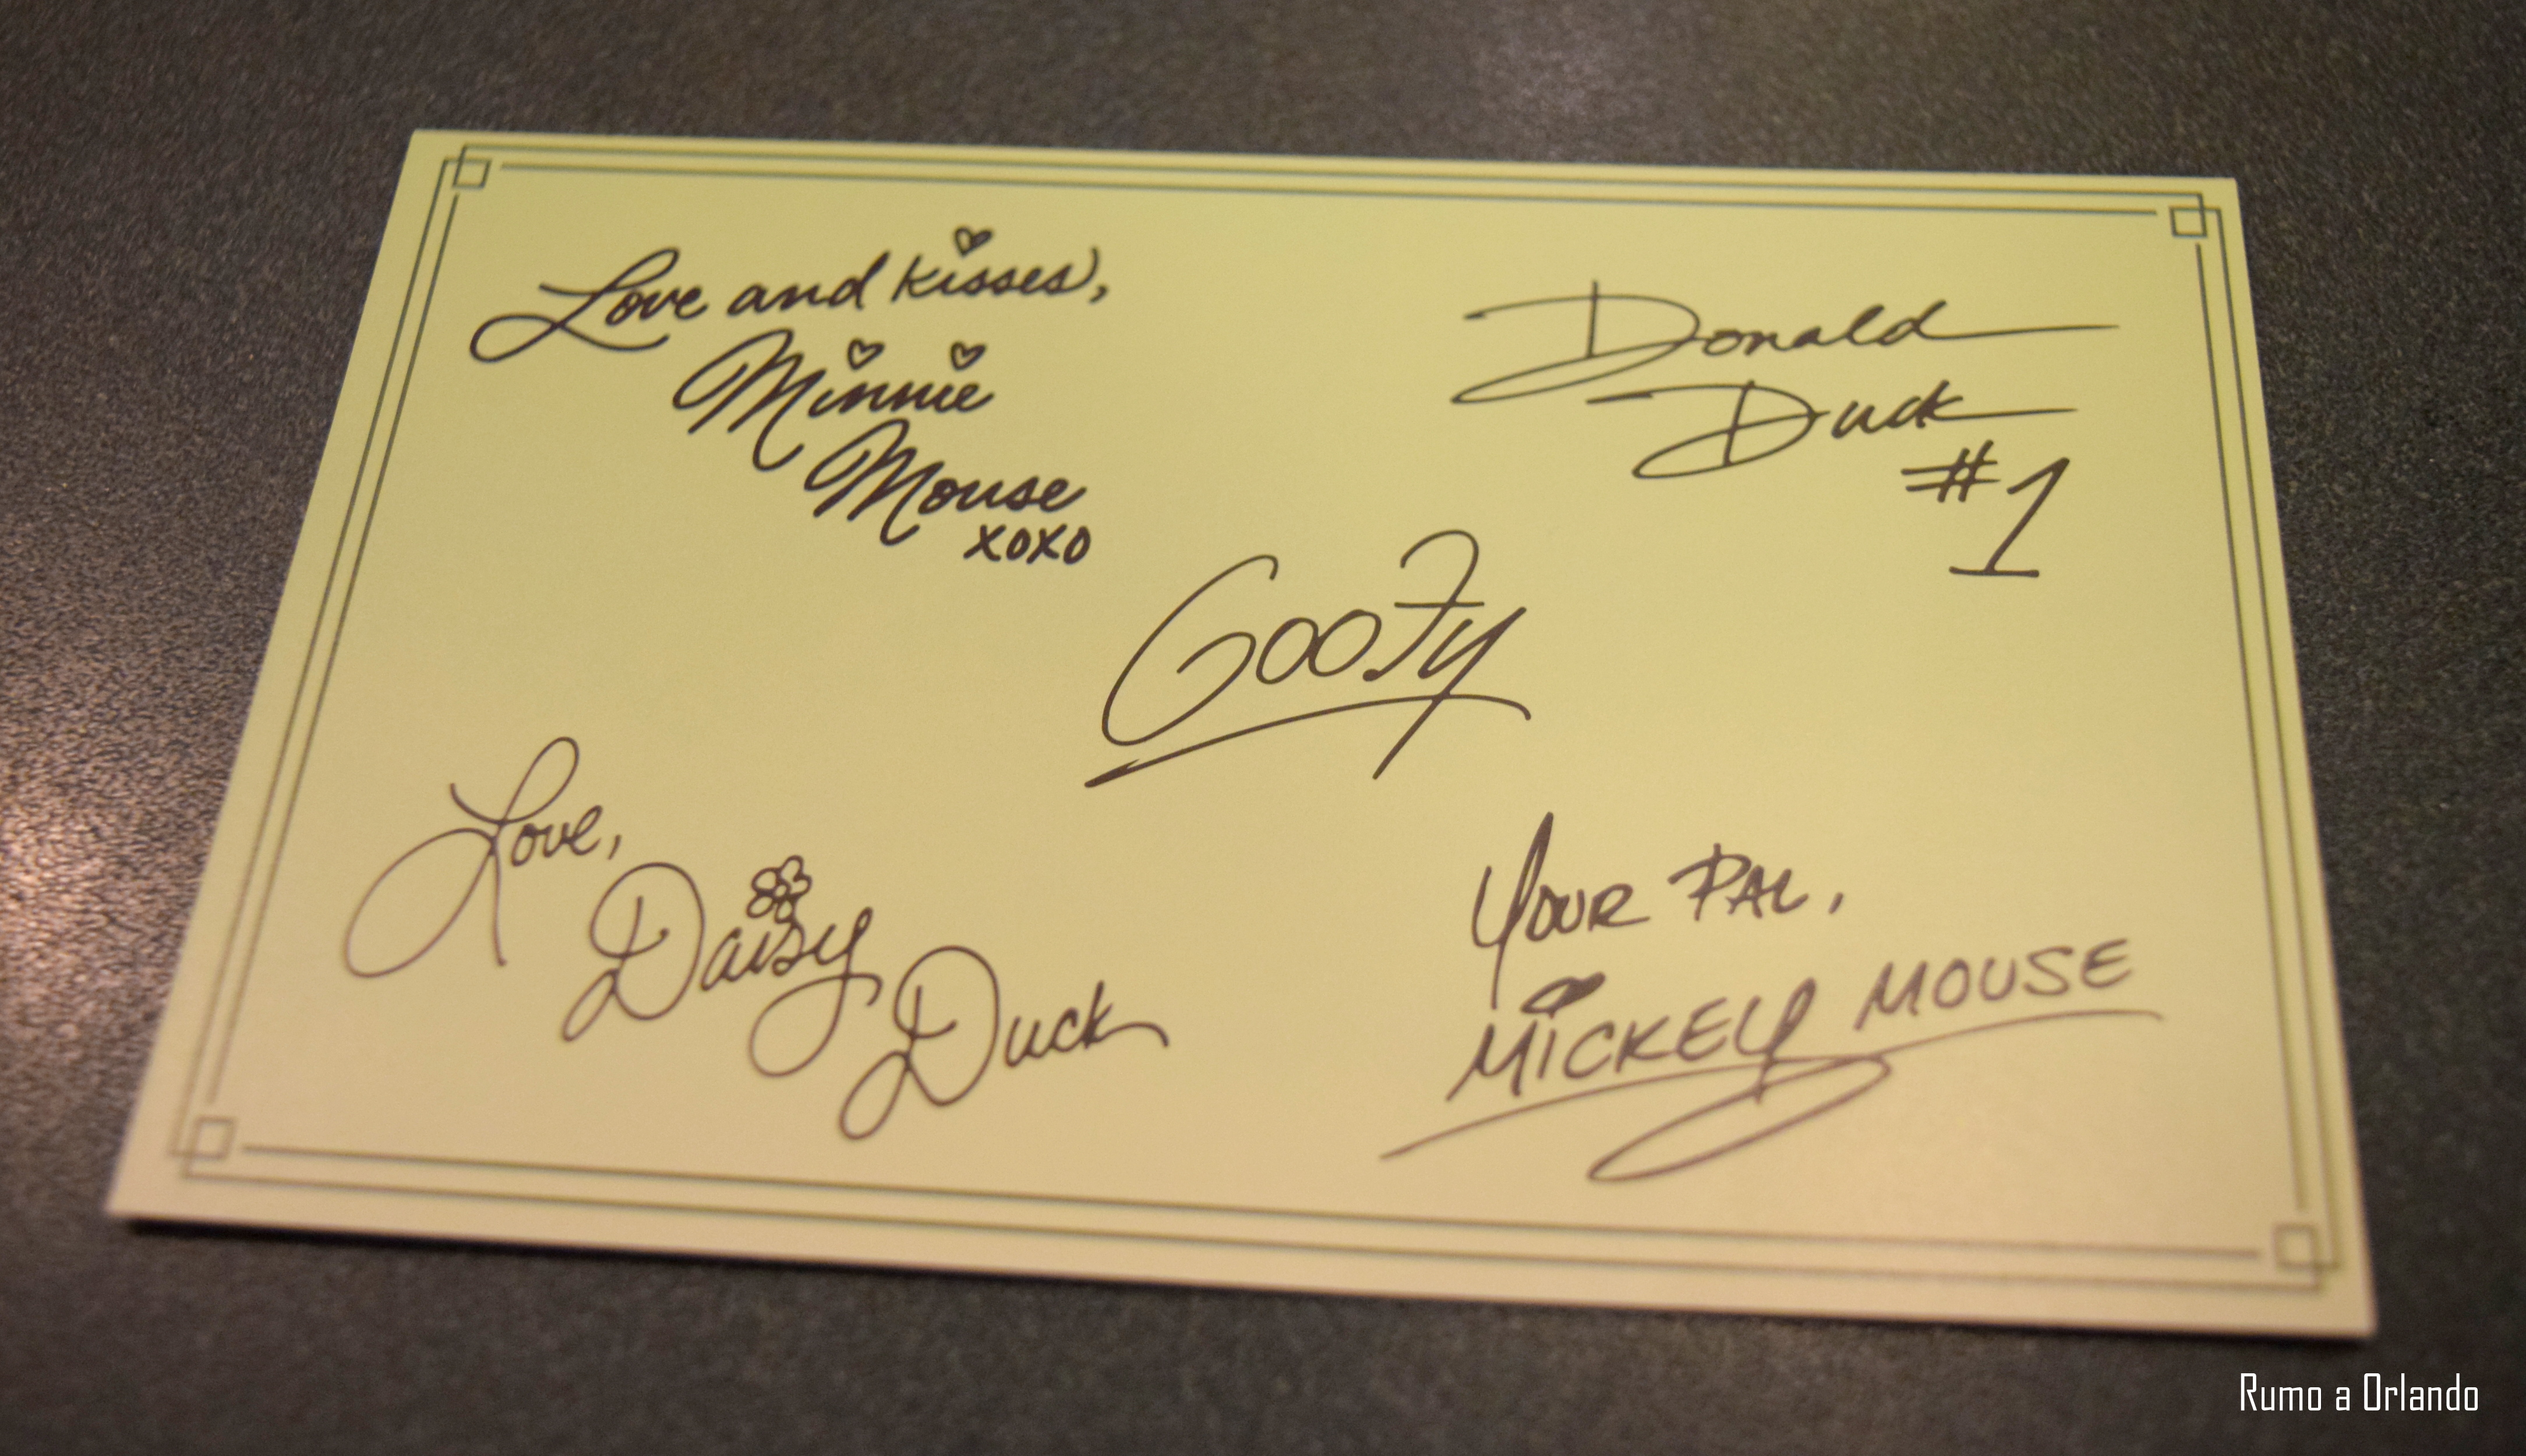 Love and kisses,
Minnie
Mouse
xoxo
Donald
Duck
#1
Goofy
Love,
Daisy
Duck
YOUR PAL,
MiCKEY MOUSE
Rumo a Orlando